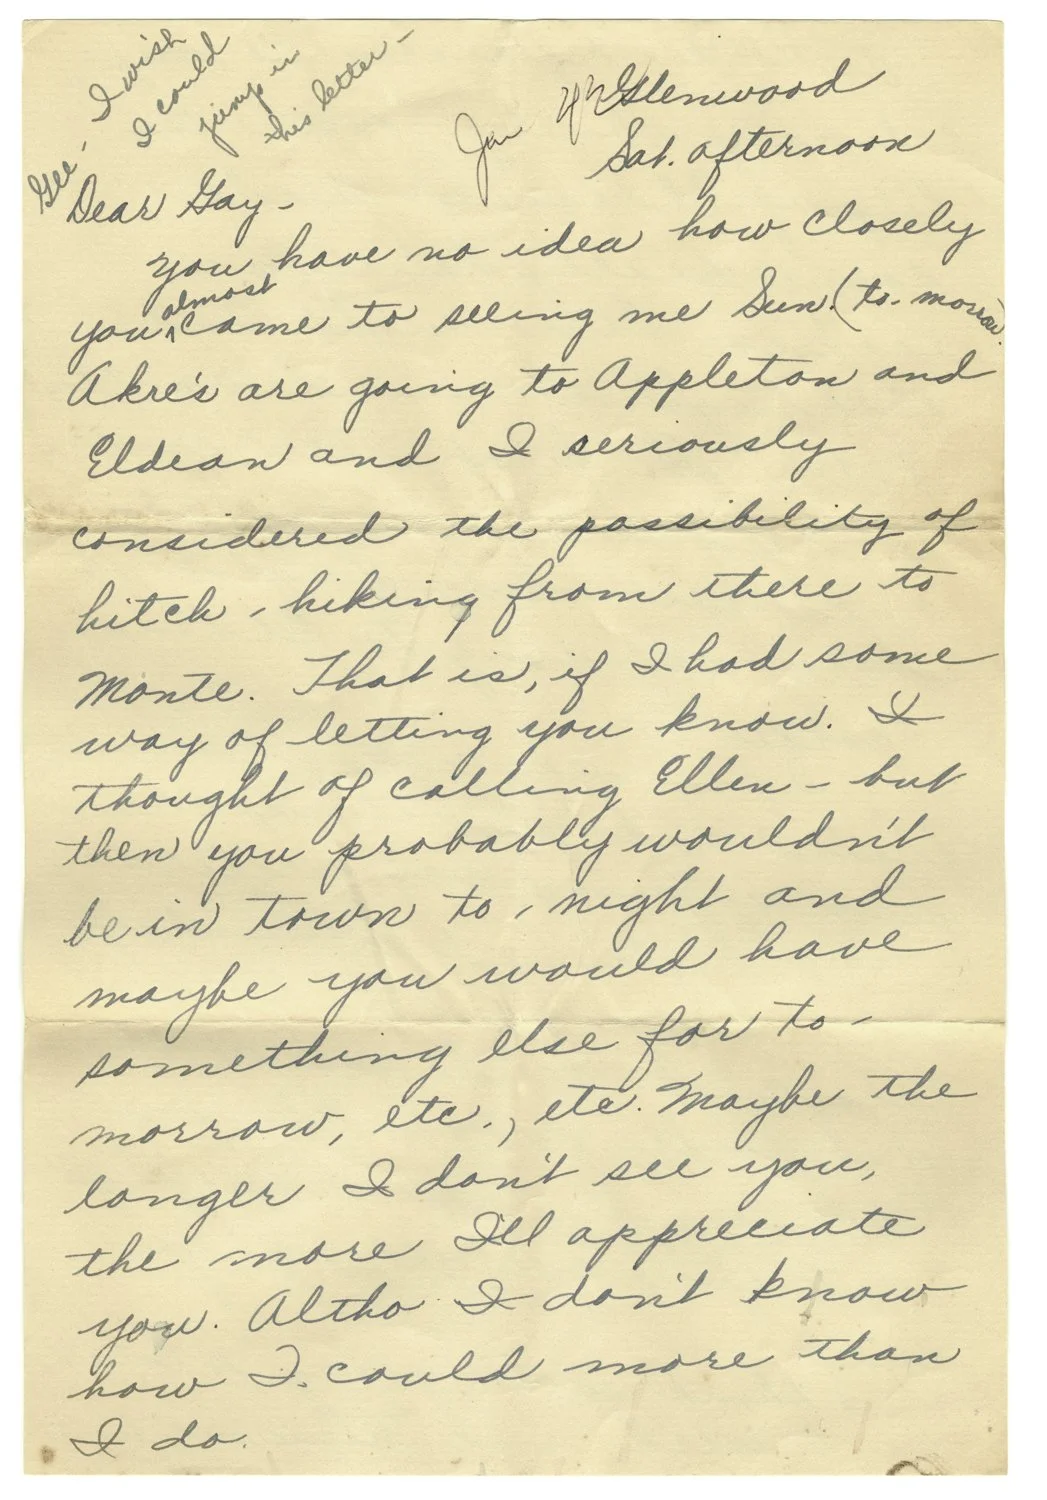 Gee, I wish
I could
jump in
this letter -
Glenwood
Jan
Sat. afternoon
Dear Gay -
You have no idea how closely
almost
you came to seeing me Sun. (to-morrow.
Akre's are going to Appleton and
Eldean and I seriously
considered the possibility of
hitch-hiking from there to
Monte. That is, if I had some
way of letting you know. I
thought of calling Ellen - but
then you probably wouldn't
be in town to-night and
maybe you would have
something else for to-
morrow, etc., etc. Maybe the
longer I don't see you,
the more I'll appreciate
you. Altho I don't know
how I could more than
I do.